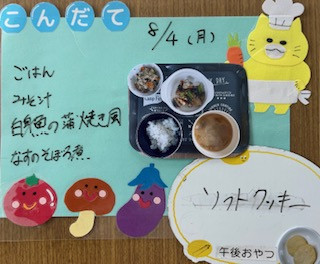 こんだて
8/4(月)
ごはん
みそ汁
白身魚の蒲焼き風
なすのそぼろ煮
ソフトクッキー
午後おやつ